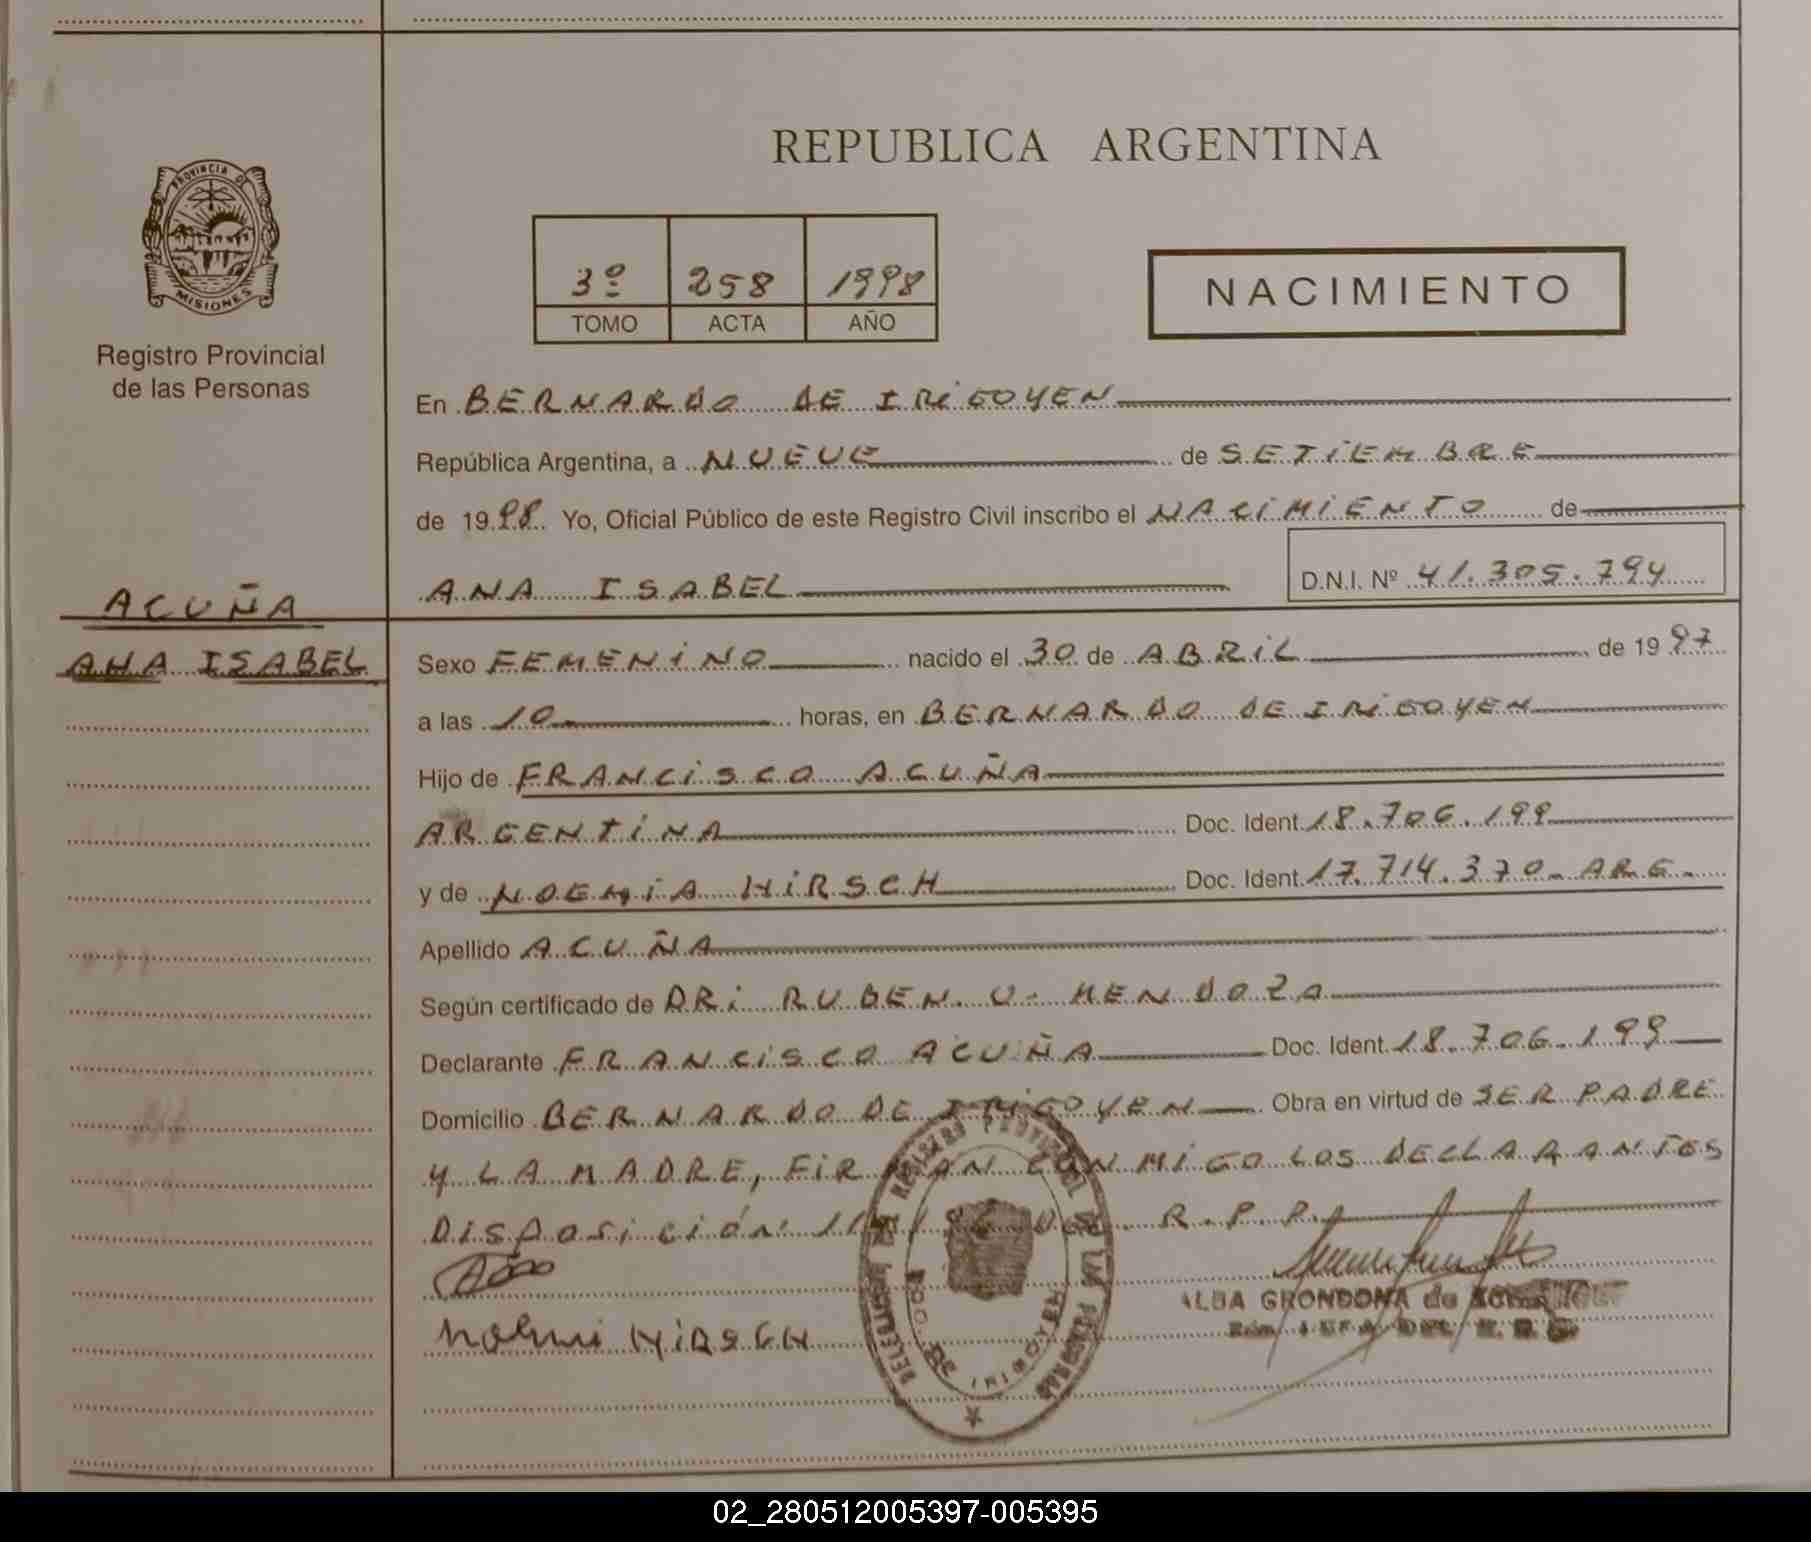 REPUBLICA ARGENTINA
PROVINCIA DE
MISIONES
Registro Provincial
de las Personas
3º 258 1998
TOMO ACTA AÑO
NACIMIENTO
En BERNARDO DE IRIGOYEN
República Argentina, a NUEVE de SETIEMBRE
de 1998. Yo, Oficial Público de este Registro Civil inscribo el NACIMIENTO de
ANA ISABEL
D.N.I. Nº 41.305.794
ACUÑA
ANA ISABEL
Sexo FEMENINO nacido el 30 de ABRIL de 1997
a las 10 horas, en BERNARDO DE IRIGOYEN
Hijo de FRANCISCO ACUÑA
ARGENTINA Doc. Ident. 18.706.199
y de NOEMIA HIRSCH Doc. Ident. 17.714.370- ARG-
Apellido ACUÑA
Según certificado de DR: RUBEN. O- MENDOZA
Declarante FRANCISCO ACUÑA Doc. Ident. 18.706.199
Domicilio BERNARDO DE IRIGOYEN Obra en virtud de SER PADRE
Y LA MADRE, FIRMAN CONMIGO LOS DECLARANTES
DISPOSICIÓN R.P.P.
NOEMI HIRSCH
REGISTRO PROVINCIAL DE LAS PERSONAS
BDO. DE IRIGOYEN
ALBA GRONDONA de
02_280512005397-005395